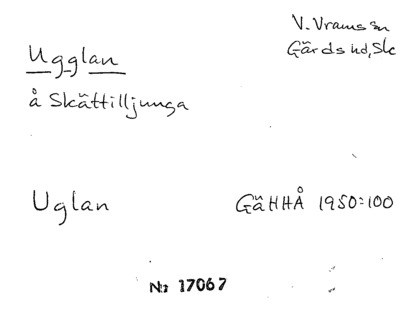 V. Vrams sn
Gärds hd, Sk
Ugglan
å Skättilljunga
Uglan
GäHHÅ 1950:100
No 17067